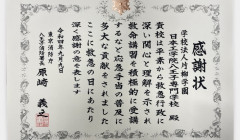 感謝状
学校法人片柳学園
日本工学院八王子専門学校 殿
貴校は平素から救急行政に
深い関心と理解を示され
救命講習を積極的に受講
するなど応急手当の普及に
多大な貢献をされました
ここに救急の日にあたり
深く感謝の意を表します
令和四年九月九日
東京消防庁
八王子消防署長
原崎 義之